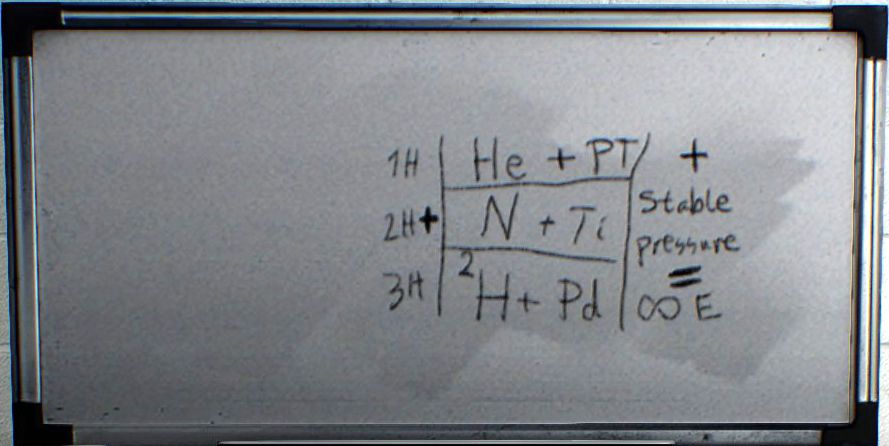 1H He + PT +
2H+ N + Ti Stable
pressure
=
3H ²H + Pd ∞ E